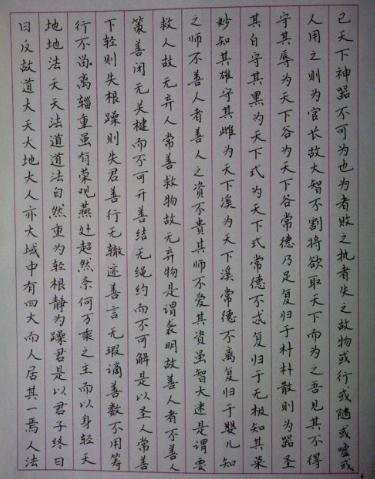 曰反故道大天大地大人亦大域中有四大而人居其一焉人法
地地法天天法道道法自然重为轻根静为躁君是以君子终日
行不离辎重虽有荣观燕处超然奈何万乘之主而以身轻天
下轻则失根躁则失君善行无辙迹善言无瑕谪善数不用筹
策善闭无关楗而不可开善结无绳约而不可解是以圣人常善
救人故无弃人常善救物故无弃物是谓袭明故善人者不善人
之师不善人者善人之资不贵其师不爱其资虽智大迷是谓要
妙知其雄守其雌为天下溪为天下溪常德不离复归于婴儿知
其白守其黑为天下式为天下式常德不忒复归于无极知其荣
守其辱为天下谷为天下谷常德乃足复归于朴朴散则为器圣
人用之则为官长故大智不割将欲取天下而为之吾见其不得
已天下神器不可为也为者败之执者失之故物或行或随或嘘或